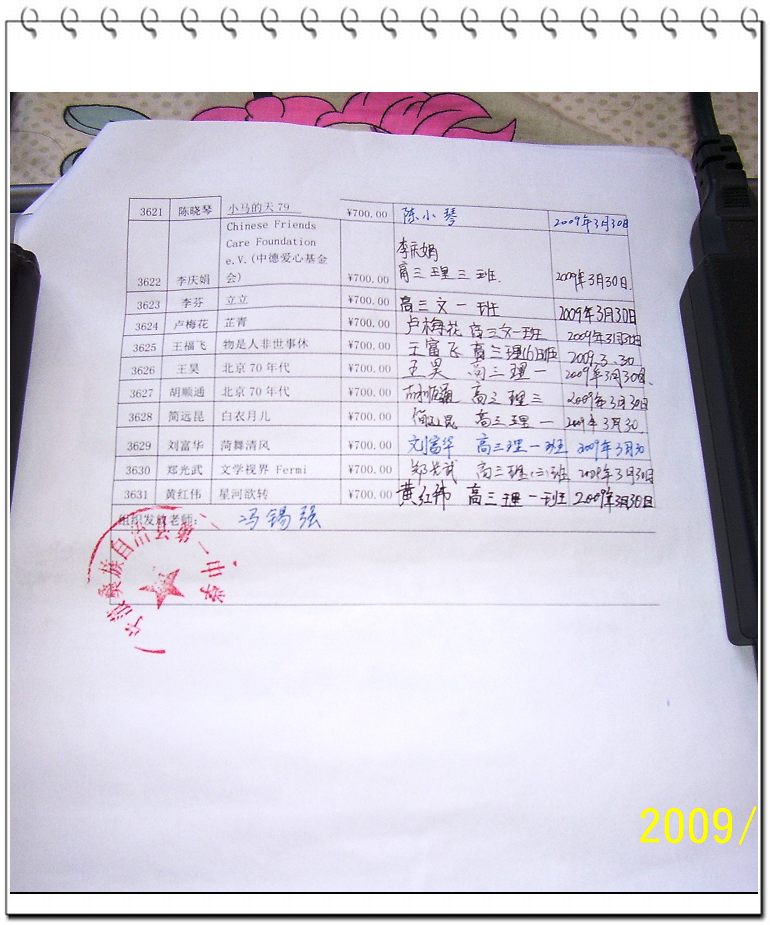 3621 陈晓琴 小马的天 79 ¥700.00 陈小琴 2009年3月30日
Chinese Friends
Care Foundation 李庆娟
e.V.(中德爱心基金
3622 李庆娟 会) ¥700.00 高三理三班. 2009年3月30日.
3623 李芬 立立 ¥700.00 高三文一班 2009年3月30日
3624 卢梅花 芷青 ¥700.00 卢梅花 高三文一班 2009年3月30日
3625 王福飞 物是人非世事休 ¥700.00 王富飞 高三理(6)班 2009.3.30
3626 王昊 北京 70 年代 ¥700.00 王昊 高三理一 2009年3月30日.
3627 胡顺通 北京 70 年代 ¥700.00 胡顺通 高三理三 2009年3月30日
3628 简远昆 白衣月儿 ¥700.00 简远昆 高三理一 2009年3月30.
3629 刘富华 菏舞清风 ¥700.00 刘富华 高三理一班 2009年3月30
3630 郑光武 文学视界 Fermi ¥700.00 郑光武 高三理(三)班 2009年3月30日
3631 黄红伟 星河欲转 ¥700.00 黄红伟 高三理一班 2009年3月30日
组织发放老师: 冯锡强
宁蒗彝族自治县第一中学
2009/